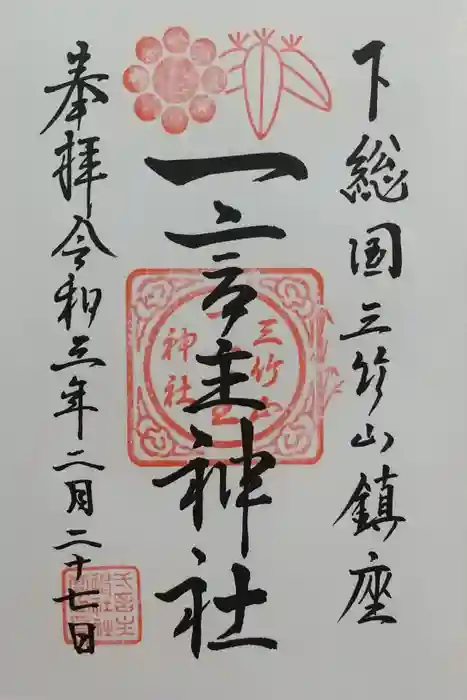 下総国三竹山鎮座
一言主神社
三竹山
神社
奉拝令和三年二月二十七日